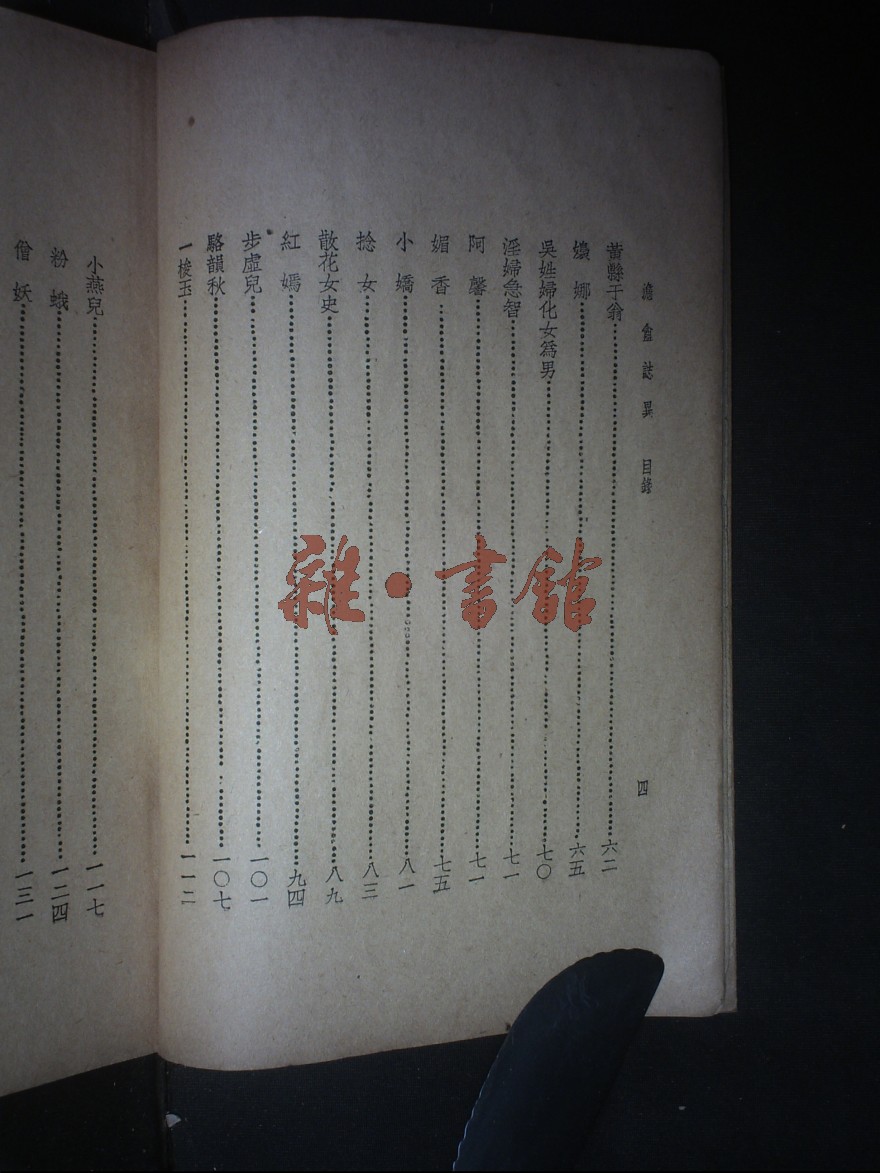 澹盦誌異 目錄 四
黃縣于翁 六二
嬝娜 六五
吳姓婦化女為男 七〇
淫婦急智 七一
阿馨 七一
媚香 七五
小嬌 八一
捻女 八三
散花女史 八九
紅嫣 九四
步虛兒 一〇一
駱韻秋 一〇七
一梭玉 一一二
小燕兒 一一七
粉蛾 一二四
僧妖 一三一
雜·書館